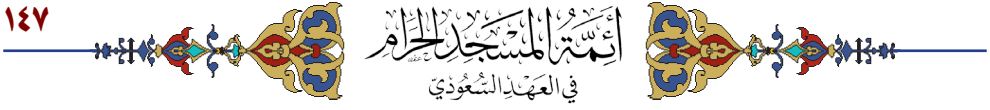 ١٤٧
أَئِمَّةُ المَسْجِدِ الحَرَامِ
فِي العَهْدِ السُّعُودِيّ